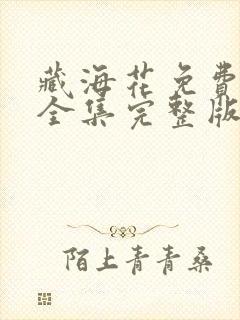 藏海花免費
全集完整版
陌上青青桑